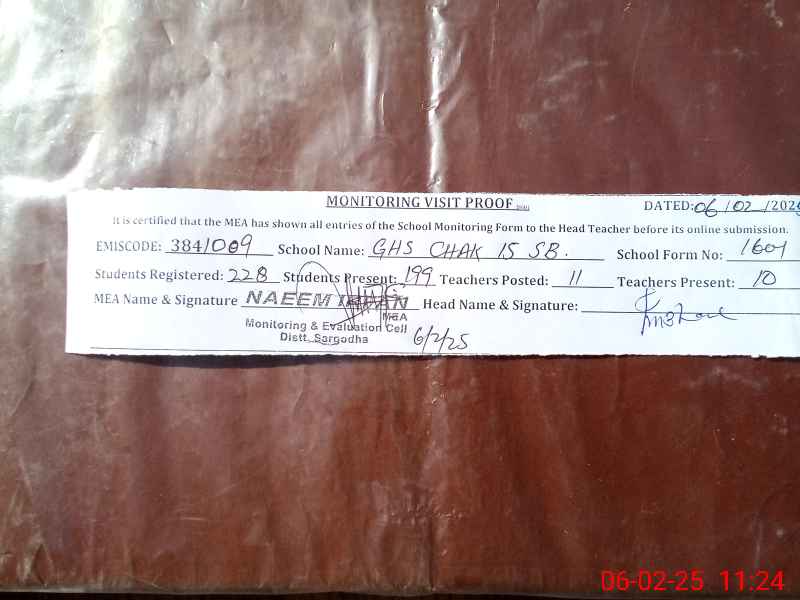 MONITORING VISIT PROOF
DATED: 06/02/202
It is certified that the MEA has shown all entries of the School Monitoring Form to the Head Teacher before its online submission.
EMISCODE: 3841009 School Name: GHS CHAK 15 SB. School Form No: 1601
Students Registered: 228 Students Present: 199 Teachers Posted: 11 Teachers Present: 10
MEA Name & Signature NAEEM Head Name & Signature:
MEA
Monitoring & Evaluation Cell
Distt. Sargodha 6/2/25
06-02-25 11:24